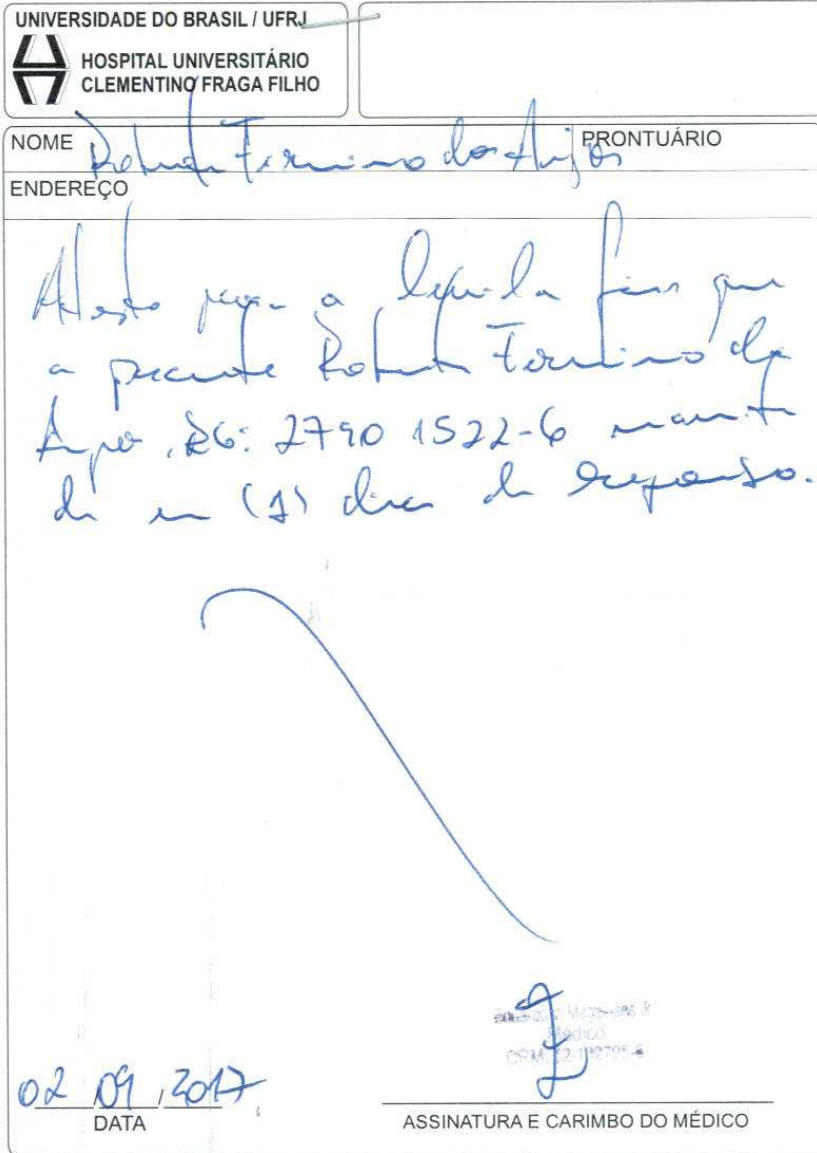 UNIVERSIDADE DO BRASIL / UFRJ
HOSPITAL UNIVERSITÁRIO
CLEMENTINO FRAGA FILHO
NOME Fermino dos Anjos PRONTUÁRIO
ENDEREÇO
Atesto para a fins que
a paciente Fermino dos
Anjos, RG: 2790 1522-6
de um (1) dia de repouso.
Médico
02 / 09 / 2017
DATA
ASSINATURA E CARIMBO DO MÉDICO